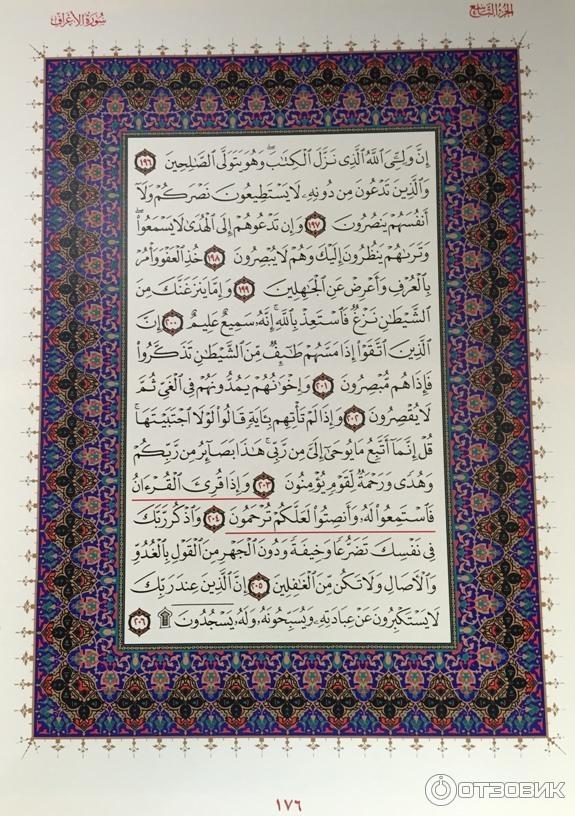 الجزء التاسع
سورة الأعراف
إِنَّ وَلِـِّۧيَ ٱللَّهُ ٱلَّذِي نَزَّلَ ٱلۡكِتَٰبَۖ وَهُوَ يَتَوَلَّى ٱلصَّٰلِحِينَ ١٩٦
وَٱلَّذِينَ تَدۡعُونَ مِن دُونِهِۦ لَا يَسۡتَطِيعُونَ نَصۡرَكُمۡ وَلَآ
أَنفُسَهُمۡ يَنصُرُونَ ١٩٧ وَإِن تَدۡعُوهُمۡ إِلَى ٱلۡهُدَىٰ لَا يَسۡمَعُواْۖ
وَتَرَىٰهُمۡ يَنظُرُونَ إِلَيۡكَ وَهُمۡ لَا يُبۡصِرُونَ ١٩٨ خُذِ ٱلۡعَفۡوَ وَأۡمُرۡ
بِٱلۡعُرۡفِ وَأَعۡرِضۡ عَنِ ٱلۡجَٰهِلِينَ ١٩٩ وَإِمَّا يَنزَغَنَّكَ مِنَ
ٱلشَّيۡطَٰنِ نَزۡغٞ فَٱسۡتَعِذۡ بِٱللَّهِۚ إِنَّهُۥ سَمِيعٌ عَلِيمٌ ٢٠٠ إِنَّ
ٱلَّذِينَ ٱتَّقَوۡاْ إِذَا مَسَّهُمۡ طَٰٓئِفٞ مِّنَ ٱلشَّيۡطَٰنِ تَذَكَّرُواْ
فَإِذَا هُم مُّبۡصِرُونَ ٢٠١ وَإِخۡوَٰنُهُمۡ يَمُدُّونَهُمۡ فِي ٱلۡغَيِّ ثُمَّ
لَا يُقۡصِرُونَ ٢٠٢ وَإِذَا لَمۡ تَأۡتِهِم بِـَٔايَةٖ قَالُواْ لَوۡلَا ٱجۡتَبَيۡتَهَاۚ
قُلۡ إِنَّمَآ أَتَّبِعُ مَا يُوحَىٰٓ إِلَيَّ مِن رَّبِّيۚ هَٰذَا بَصَآئِرُ مِن رَّبِّكُمۡ
وَهُدٗى وَرَحۡمَةٞ لِّقَوۡمٖ يُؤۡمِنُونَ ٢٠٣ وَإِذَا قُرِئَ ٱلۡقُرۡءَانُ
فَٱسۡتَمِعُواْ لَهُۥ وَأَنصِتُواْ لَعَلَّكُمۡ تُرۡحَمُونَ ٢٠٤ وَٱذۡكُر رَّبَّكَ
فِي نَفۡسِكَ تَضَرُّعٗا وَخِيفَةٗ وَدُونَ ٱلۡجَهۡرِ مِنَ ٱلۡقَوۡلِ بِٱلۡغُدُوِّ
وَٱلۡأٓصَالِ وَلَا تَكُن مِّنَ ٱلۡغَٰفِلِينَ ٢٠٥ إِنَّ ٱلَّذِينَ عِندَ رَبِّكَ
لَا يَسۡتَكۡبِرُونَ عَنۡ عِبَادَتِهِۦ وَيُسَبِّحُونَهُۥ وَلَهُۥ يَسۡجُدُونَ ۩ ٢٠٦
١٧٦
ОТЗОВИК